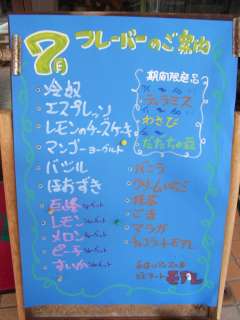 7月 フレーバーのご案内
冷奴
エスプレッソ
レモンのチーズケーキ
マンゴーヨーグルト
バジル
ほおずき
巨峰シャーベット
レモンシャーベット
メロンシャーベット
ピーチシャーベット
すいかシャーベット
期間限定品
ティラミス
わさび
バニラ
クリームいちご
抹茶
ごま
マラガ
チョコラートモナレ